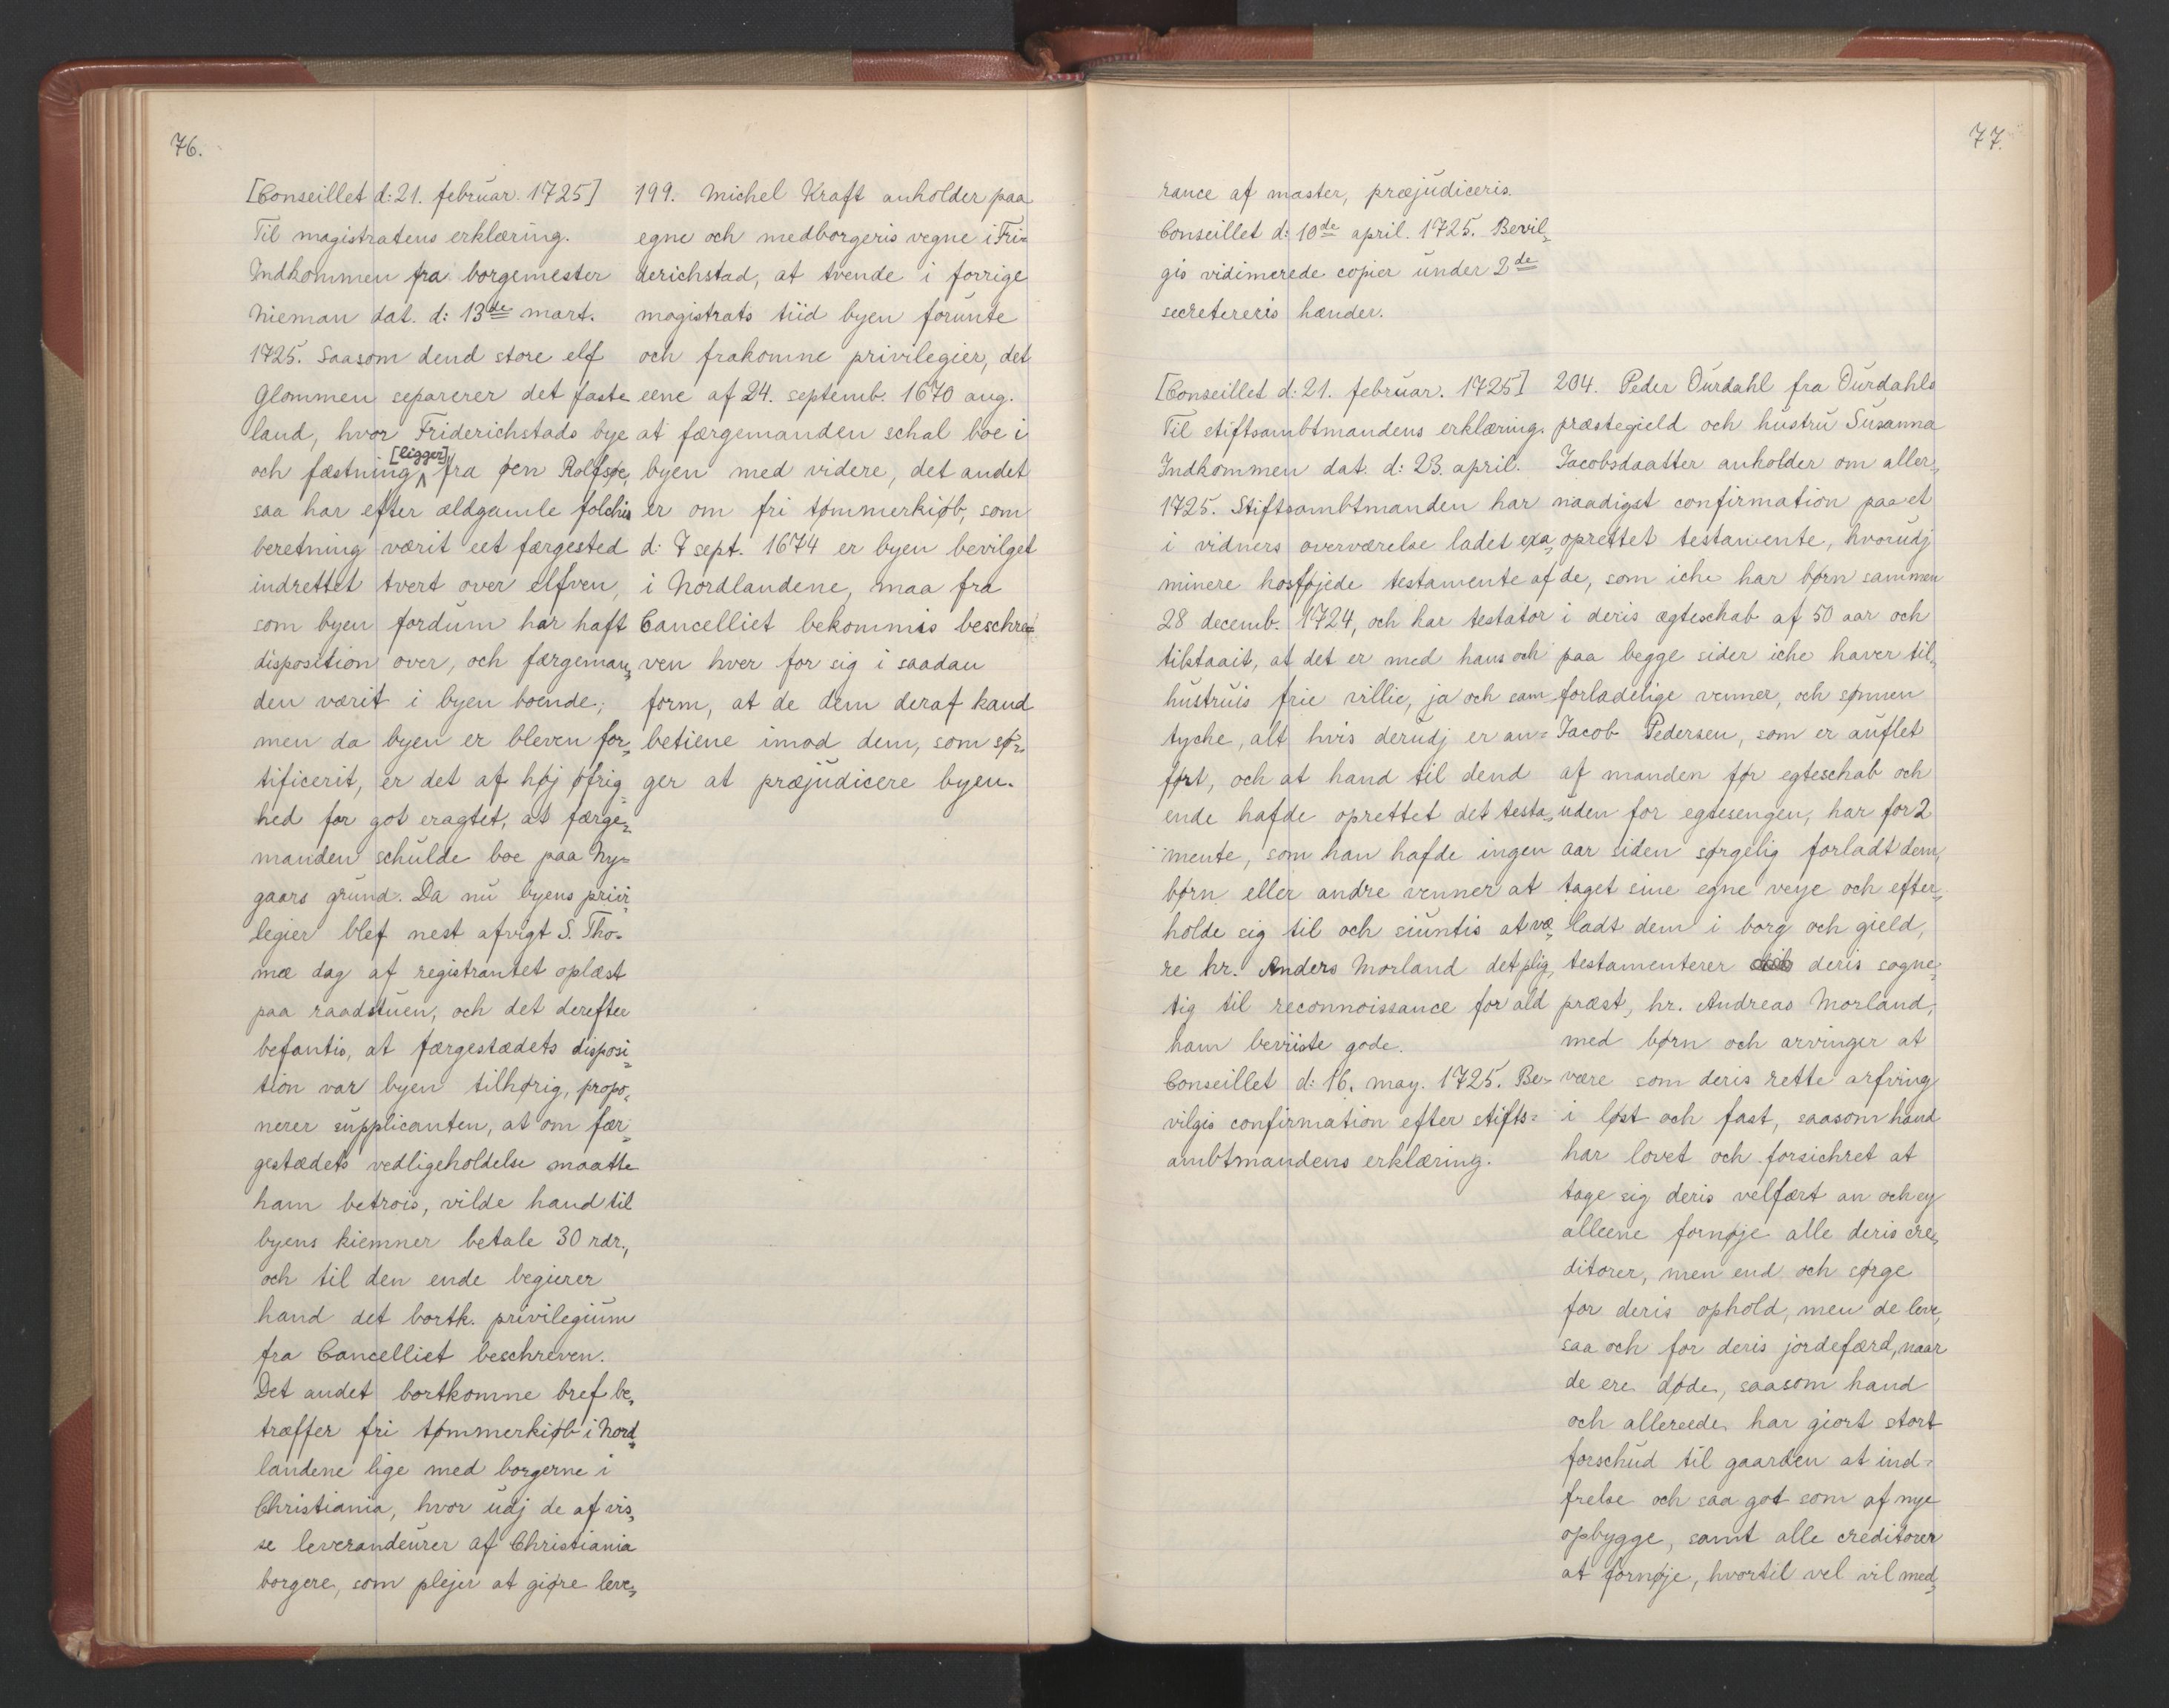 76.
[Conseillet d: 21. februar 1725]
Til magistratens erklæring.
Indkommen fra borgemester
Nieman dat. d: 13de mart.
1725. Saasom dend store elf
Glommen separerer det faste
land, hvor Friderichstads bye
och fæstning [ligger] fra øen Rolfsøe,
saa har efter ældgamle folchis
beretning værit eet færgested
indrettet tvert over elfven,
som byen fordum har haft
disposition over, och færgeman„
den værit i byen boende;
men da byen er bleven for„
tificerit, er det af høj øfrig„
hed for got eragtet, at færge„
manden schulde boe paa Ny=
gaars grund. Da nu byens privi„
legier blef nest afvigt S. Tho=
mæ dag af registrantet oplæst
paa raadstuen, och det derefter
befantis, at færgestædets disposi„
tion var byen tilhørig, propo„
nerer supplicanten, at om fær„
gestædets vedligeholdelse maatte
ham betrois, vilde hand til
byens kiemner betale 30 rdr.,
och til den ende begierer
hand det bortk. privilegium
fra Cancelliet beschreven.
Det andet bortkomne bref be„
træffer fri tømmerkiøb i Nord„
landene lige med borgerne i
Christiania, hvor udj de af vis„
se leverandeurer af Christiania
borgere, som plejer at giøre leve„
199. Michel Kraft anholder paa
egne och medborgeris vegne i Fri=
derichstad, at tvende i forrige
magistrats tiid byen forunte
och frakomne privilegier, det
eene af 24. septemb. 1670 ang.
at færgemanden schal boe i
byen med videre, det andet
er om fri tømmerkiøb, som
d: 7 sept. 1674 er byen bevilget
i Nordlandene, maa fra
Cancelliet bekommis beschre=
ven hver for sig i saadan
form, at de dem deraf kand
betiene imod dem, som sø„
ger at præjudicere byen.
77.
rance af master, præjudiceris.
Conseillet d: 10de april. 1725. Bevil„
gis vidimerede copier under 2de
secretereris hænder.
[Conseillet d: 21. februar. 1725]
Til stiftsambtmandens erklæring.
Indkommen dat. d: 23. april.
1725. Stiftsambtmanden har
i vidners overværelse ladet exa„
minere hosføjede testamente af
28 decemb. 1724, och har testator
tilstaait, at det er med hans och
hustruis frie villie, ja och sam
tyche, alt hvis derudj er an=
ført, och at hand til dend
ende hafde oprettet det testa„
mente, som han hafde ingen
børn eller andre venner at
holde sig til och siuntis at væ„
re hr. Anders Morland det plig„
tig til reconnoissance for ald
ham beviiste gode.
Conseillet d: 16. may. 1725. Be=
vilgis confirmation efter stifts=
ambtmandens erklæring.
204. Peder Durdahl fra Durdahls
præstegield och hustru Susanna
Jacobsdaatter anholder om aller„
naadigst confirmation paa et
oprettet testamente, hvorudj
de, som iche har børn sammen
i deris ægteschab af 50 aar och
paa begge sider iche haver til„
forladelige venner, och sønnen
Jacob Pedersen, som er auflet
af manden før egteschab och
uden for egtesengen, har for 2
aar siden sørgelig forladt dem,
taget sine egne veye och efter„
ladt dem i borg och gield,
testamenterer deris sogne„
præst, hr. Andreas Morland,
med børn och arvinger at
være som deris rette arfving
i løst och fast, saasom hand
har lovet och forsichret at
tage sig deris velfært an och ey
alleene fornøje alle deris cre„
ditorer, men end och sørge
for deris ophold, men de leve,
saa och for deris jordefærd, naar
de ere døde, saasom hand
och allereede har giort stort
forschud til gaarden at ind=
frelse och saa got som af nye
opbygge, samt alle creditorer
at fornøje, hvortil vel vil med„